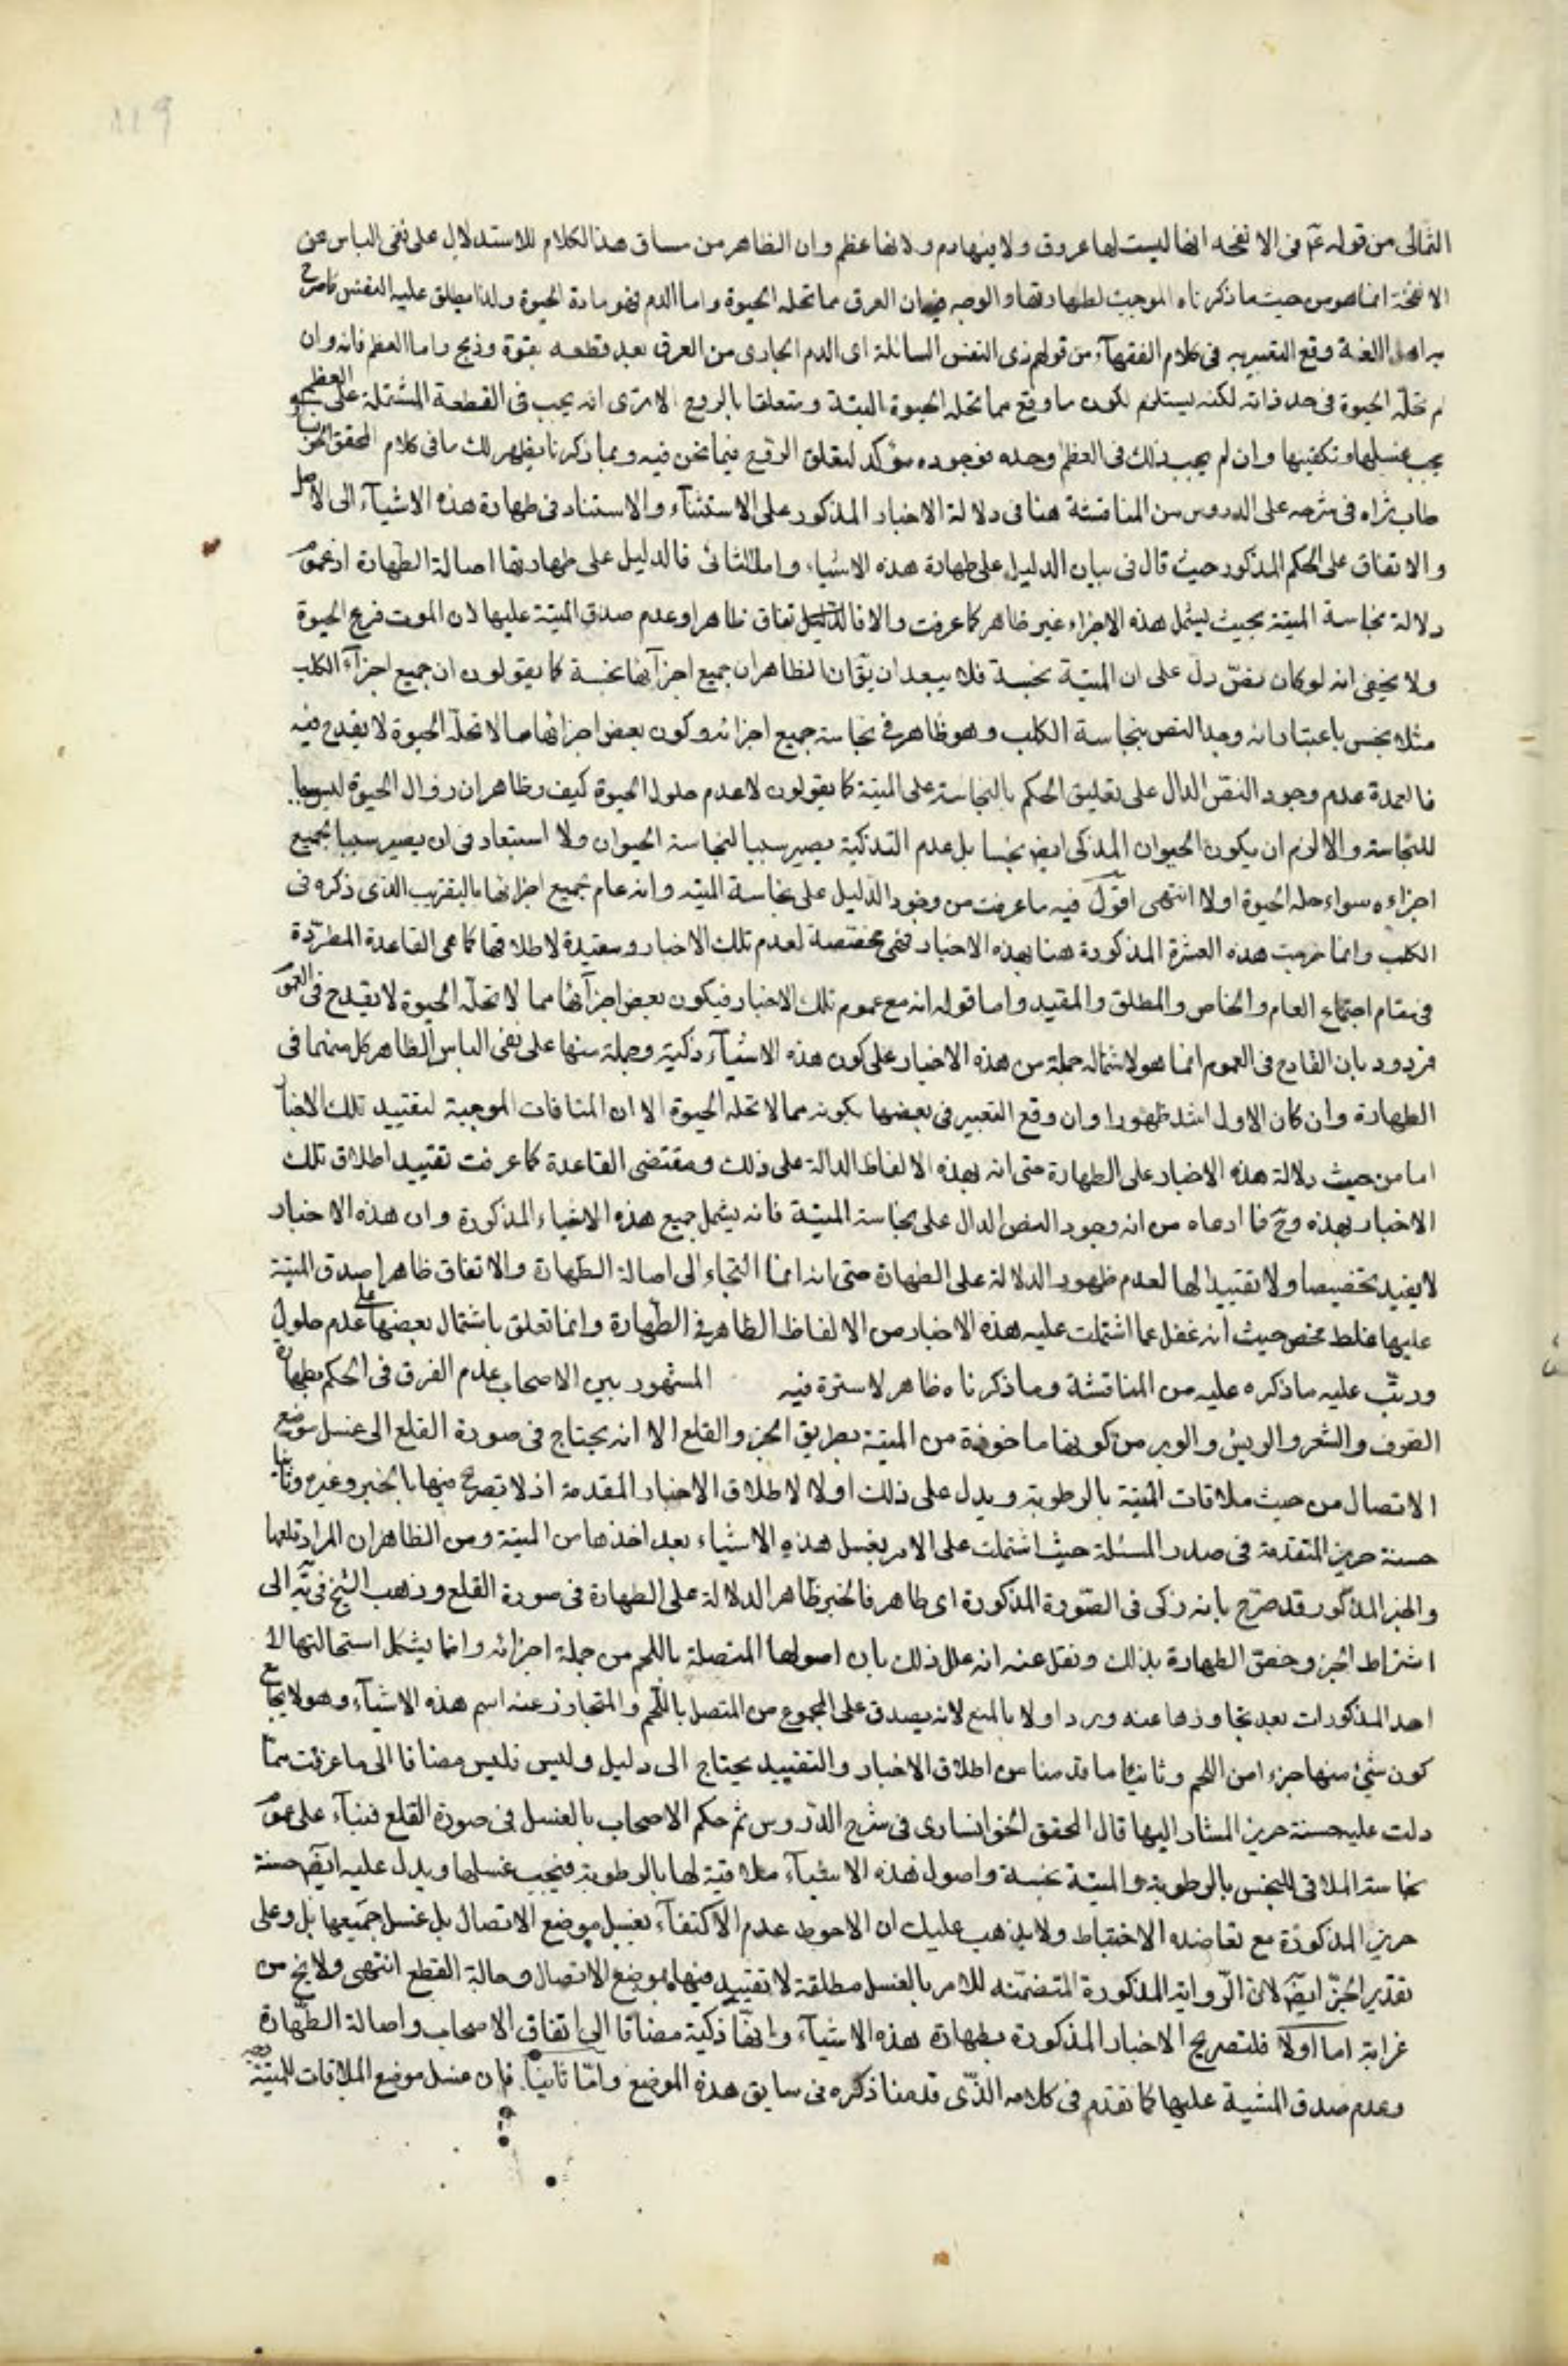 ١١٩
الثمالى من قوله ع في الانفحه انها ليست لها عروق ولا فيها دم ولا لها عظم وان الظاهر من مساق هذا الكلام للاستدلال على نفى الباس عن
الانفحة انما هو من حيث ما ذكرناه الموجب لطهارتها والوجه فيه ان العرق مما تحله الحيوة واما الدم فهو مادة الحيوة ولذا يطلق عليه النفس كما صرح
به اهل اللغة وقع التعبير به في كلام الفقهآء من قولهم ذى النفس السائلة اى الدم الجارى من العرق بعد قطعه بقوة وذبح واما العظم فانه وان
لم تحله الحيوة في حد ذاته لكنه يستلزم لكون ما وقع مما تحله الحيوة البتة ومتعلقا بالروح الا ترى انه يجب في القطعة المشتملة على العظم
يجب غسلها وتكفينها وان لم يجب ذلك في العظم وحده فوجوده مؤكد لتعلق الروح فيما نحن فيه وبما ذكرنا يظهر لك ما في كلام المحقق الخونسارى
طاب ثراه في شرحه على الدروس من المناقشة هنا في دلالة الاخبار المذكور على الاستثناء والاستناد في طهارة هذه الاشيآء الى الاصل
والاتفاق على الحكم المذكور حيث قال في بيان الدليل على طهارة هذه الاشياء واما الثانى فالدليل على طهارتها اصالة الطهارة اذ عموم
دلالة نجاسة الميتة بحيث يشمل هذه الاجزاء غير ظاهر كما عرفت والاتفاق ظاهرا وعدم صدق الميتة عليها لان الموت فرع الحيوة
ولا يخفى انه لو كان نص دل على ان الميتة نجسة فلا يبعد ان يق ان الظاهر ان جميع اجزآئها نجسة كما يقولون ان جميع اجزآء الكلب
مثلا نجس باعتبار انه وجد النص بنجاسة الكلب وهو ظاهر في نجاسة جميع اجزائه وكون بعض اجزائها مما لا تحله الحيوة لا يقدح فيه
فالعمدة عدم وجود النص الدال على تعليق الحكم بالنجاسة على الميتة كما يقولون لا عدم حلول الحيوة كيف وظاهر ان زوال الحيوة ليس سببا
للنجاسة والا لزم ان يكون الحيوان المذكى ايض نجسا بل عدم التذكية يصير سببا لنجاسة الحيوان ولا استبعاد في ان يصير سببا لجميع
اجزاءه سواء حله الحيوة اولا انتهى اقول فيه ما عرفت من وجود الدليل على نجاسة الميته وانه عام لجميع اجزائها بالتقريب الذى ذكره في
الكلب وانما خرجت هذه العشرة المذكورة هنا بهذه الاخبار فهى مخصصة لعدم تلك الاخبار ومقيدة لاطلاقها كما هى القاعدة المطردة
في مقام اجتماع العام والخاص والمطلق والمقيد واما قوله انه مع عموم تلك الاخبار فيكون بعض اجزآئها مما لا تحله الحيوة لا يقدح في العموم
فردود بان القادح في العموم انما هو لاشتمال جملة من هذه الاخبار على كون هذه الاشيآء ذكية وجملة منها على نفى الباس الظاهر كل منهما في
الطهارة وان كان الاول اشد ظهورا وان وقع التعبير في بعضها بكونه مما لا تحله الحيوة الا ان المنافات الموجبة لتقييد تلك الاخبار
اما من حيث دلالة هذه الاخبار على الطهارة حتى انه بهذه الالفاظ الدالة على ذلك ومقتضى القاعدة كما عرفت تقييد اطلاق تلك
الاخبار بهذه وح فما ادعاه من انه وجود النص الدال على نجاسة الميتة فانه يشمل جميع هذه الاشياء المذكورة وان هذه الاخبار
لا يفيد تخصيصا ولا تقييدا لها لعدم ظهور الدلالة على الطهارة حتى انه انما التجاء الى اصالة الطهارة والاتفاق ظاهرا صدق الميتة
عليها غلط محض حيث انه غفل عما اشتملت عليه هذه الاخبار من الالفاظ الظاهر في الطهارة وانما تعلق باشتمال بعضها على عدم حلول
ورتب عليه ما ذكره عليه من المناقشة وما ذكرناه ظاهر لا سترة فيه المشهور بين الاصحاب عدم الفرق في الحكم بطهارة
الصوف والشعر والريش والوبر من كونها ماخوذة من الميتة بطريق الجز والقلع الا انه يحتاج في صورة القلع الى غسل موضع
الاتصال من حيث ملاقات الميتة بالرطوبة ويدل على ذلك اولا لاطلاق الاخبار المقدمة اذ لا تصريح فيها بالجز وغيره وثانيا
حسنة حريز المتقدمة في صدر المسئلة حيث اشتملت على الامر بغسل هذه الاشياء بعد اخذها من الميتة ومن الظاهر ان المراد قلعها
والخبر المذكور قد صرح بانه ذكى في الصورة المذكورة اى طاهر فالخبر ظاهر الدلالة على الطهارة في صورة القلع وذهب الشيخ في يه الى
اشتراط الجز وخص الطهارة بذلك ونقل عنه انه علل ذلك بان اصولها المتصلة باللحم من جملة اجزائه وانما يشكل استحالتها لا
احد المذكورات بعد تجاوزها عنه ورد اولا بالمنع لانه يصدق على المجموع من المتصل باللحم والمتجاوز عنه اسم هذه الاشيآء وهو لا يجامع
كون شئ منها جزءا من اللحم وثانيا ما قدمنا من اطلاق الاخبار والتقييد يحتاج الى دليل وليس فليس مضافا الى ما عرفت مما
دلت عليه حسنة حريز المشار اليها قال المحقق الخوانسارى في شرح الدروس ثم حكم الاصحاب بالغسل في صورة القلع فبناء على عموم
نجاسة الملاقى للنجس بالرطوبة والميتة نجسة واصول هذه الاشيآء ملاقية لها بالرطوبة فيجب غسلها ويدل عليه ايض حسنة
حريز المذكورة مع تعاضده الاحتياط ولا يذهب عليك ان الاحوط عدم الاكتفآء بغسل موضع الاتصال بل غسل جميعها بل وعلى
تقدير الجز ايض لان الرواية المذكورة المتضمنه للامر بالغسل مطلقة لا تقييد فيها بموضع الاتصال وحالة القطع انتهى ولا يخ من
غرابة اما اولا فلتصريح الاخبار المذكورة بطهارة هذه الاشيآء وانها ذكية مضافا الى اتفاق الاصحاب واصالة الطهارة
وعدم صدق الميتة عليها كما تقدم في كلامه الذى قدمنا ذكره في سابق هذه الموضع واما ثانيا فان غسل موضع الملاقات للميتة